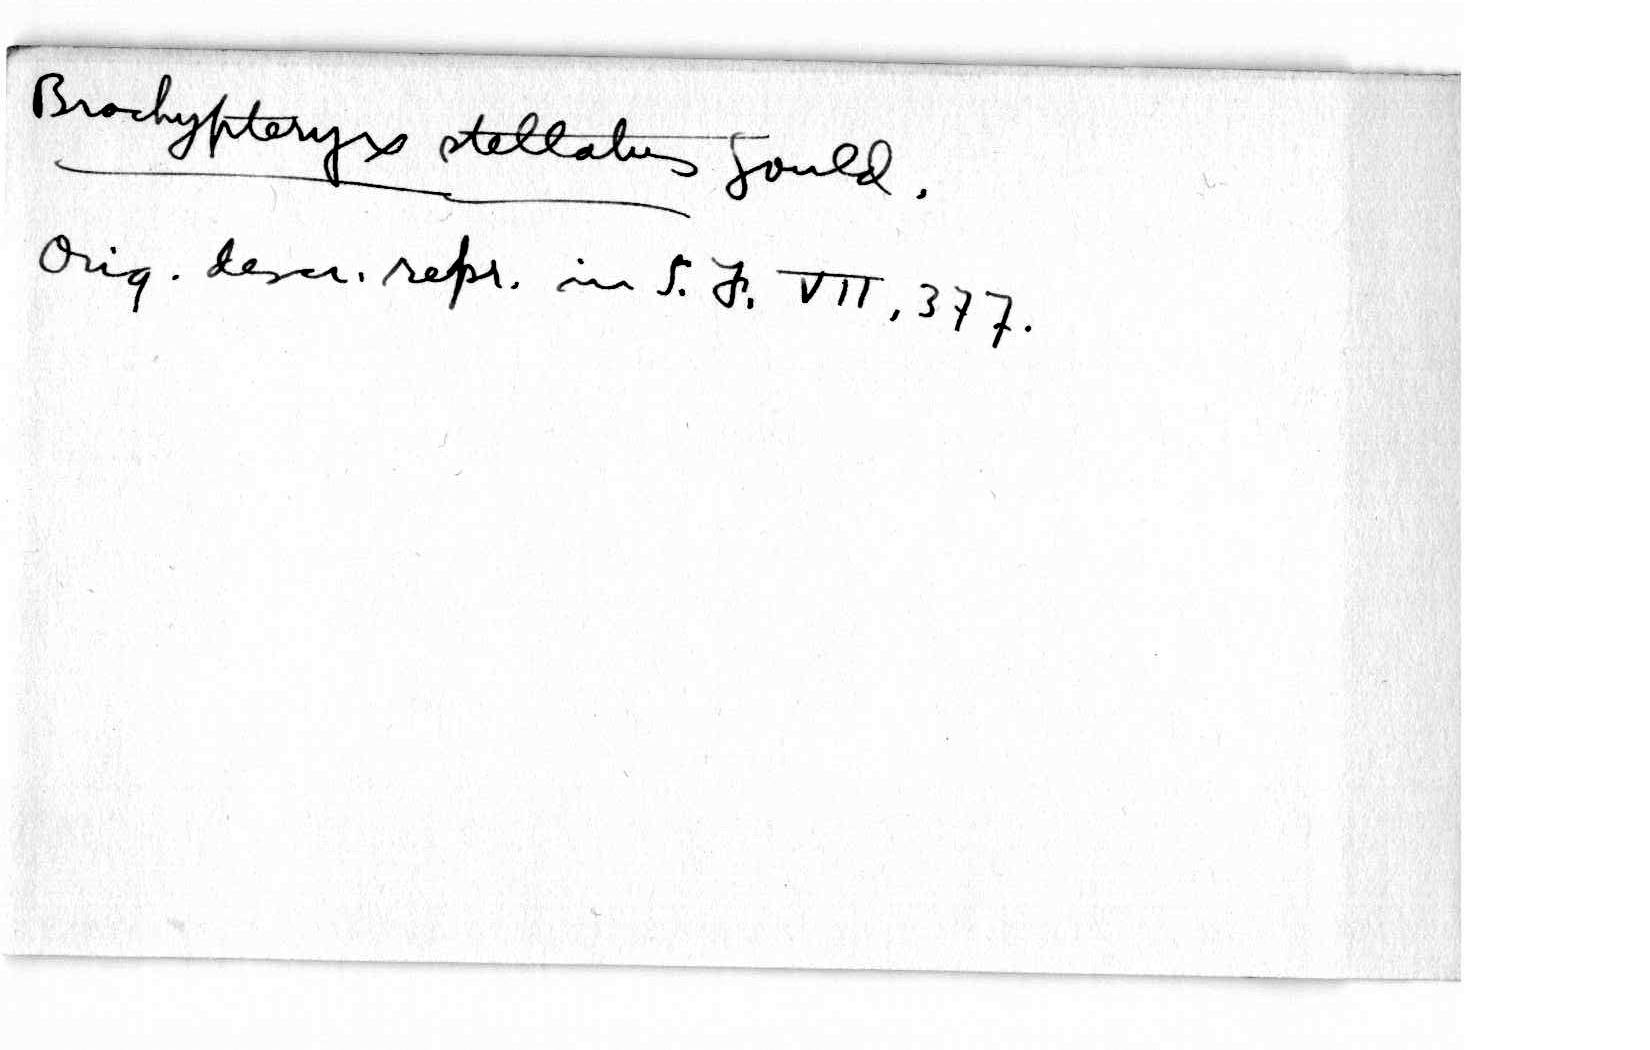 Brachypteryx stellatus Gould.
Orig. descr. repr. in S. F. VII, 377.